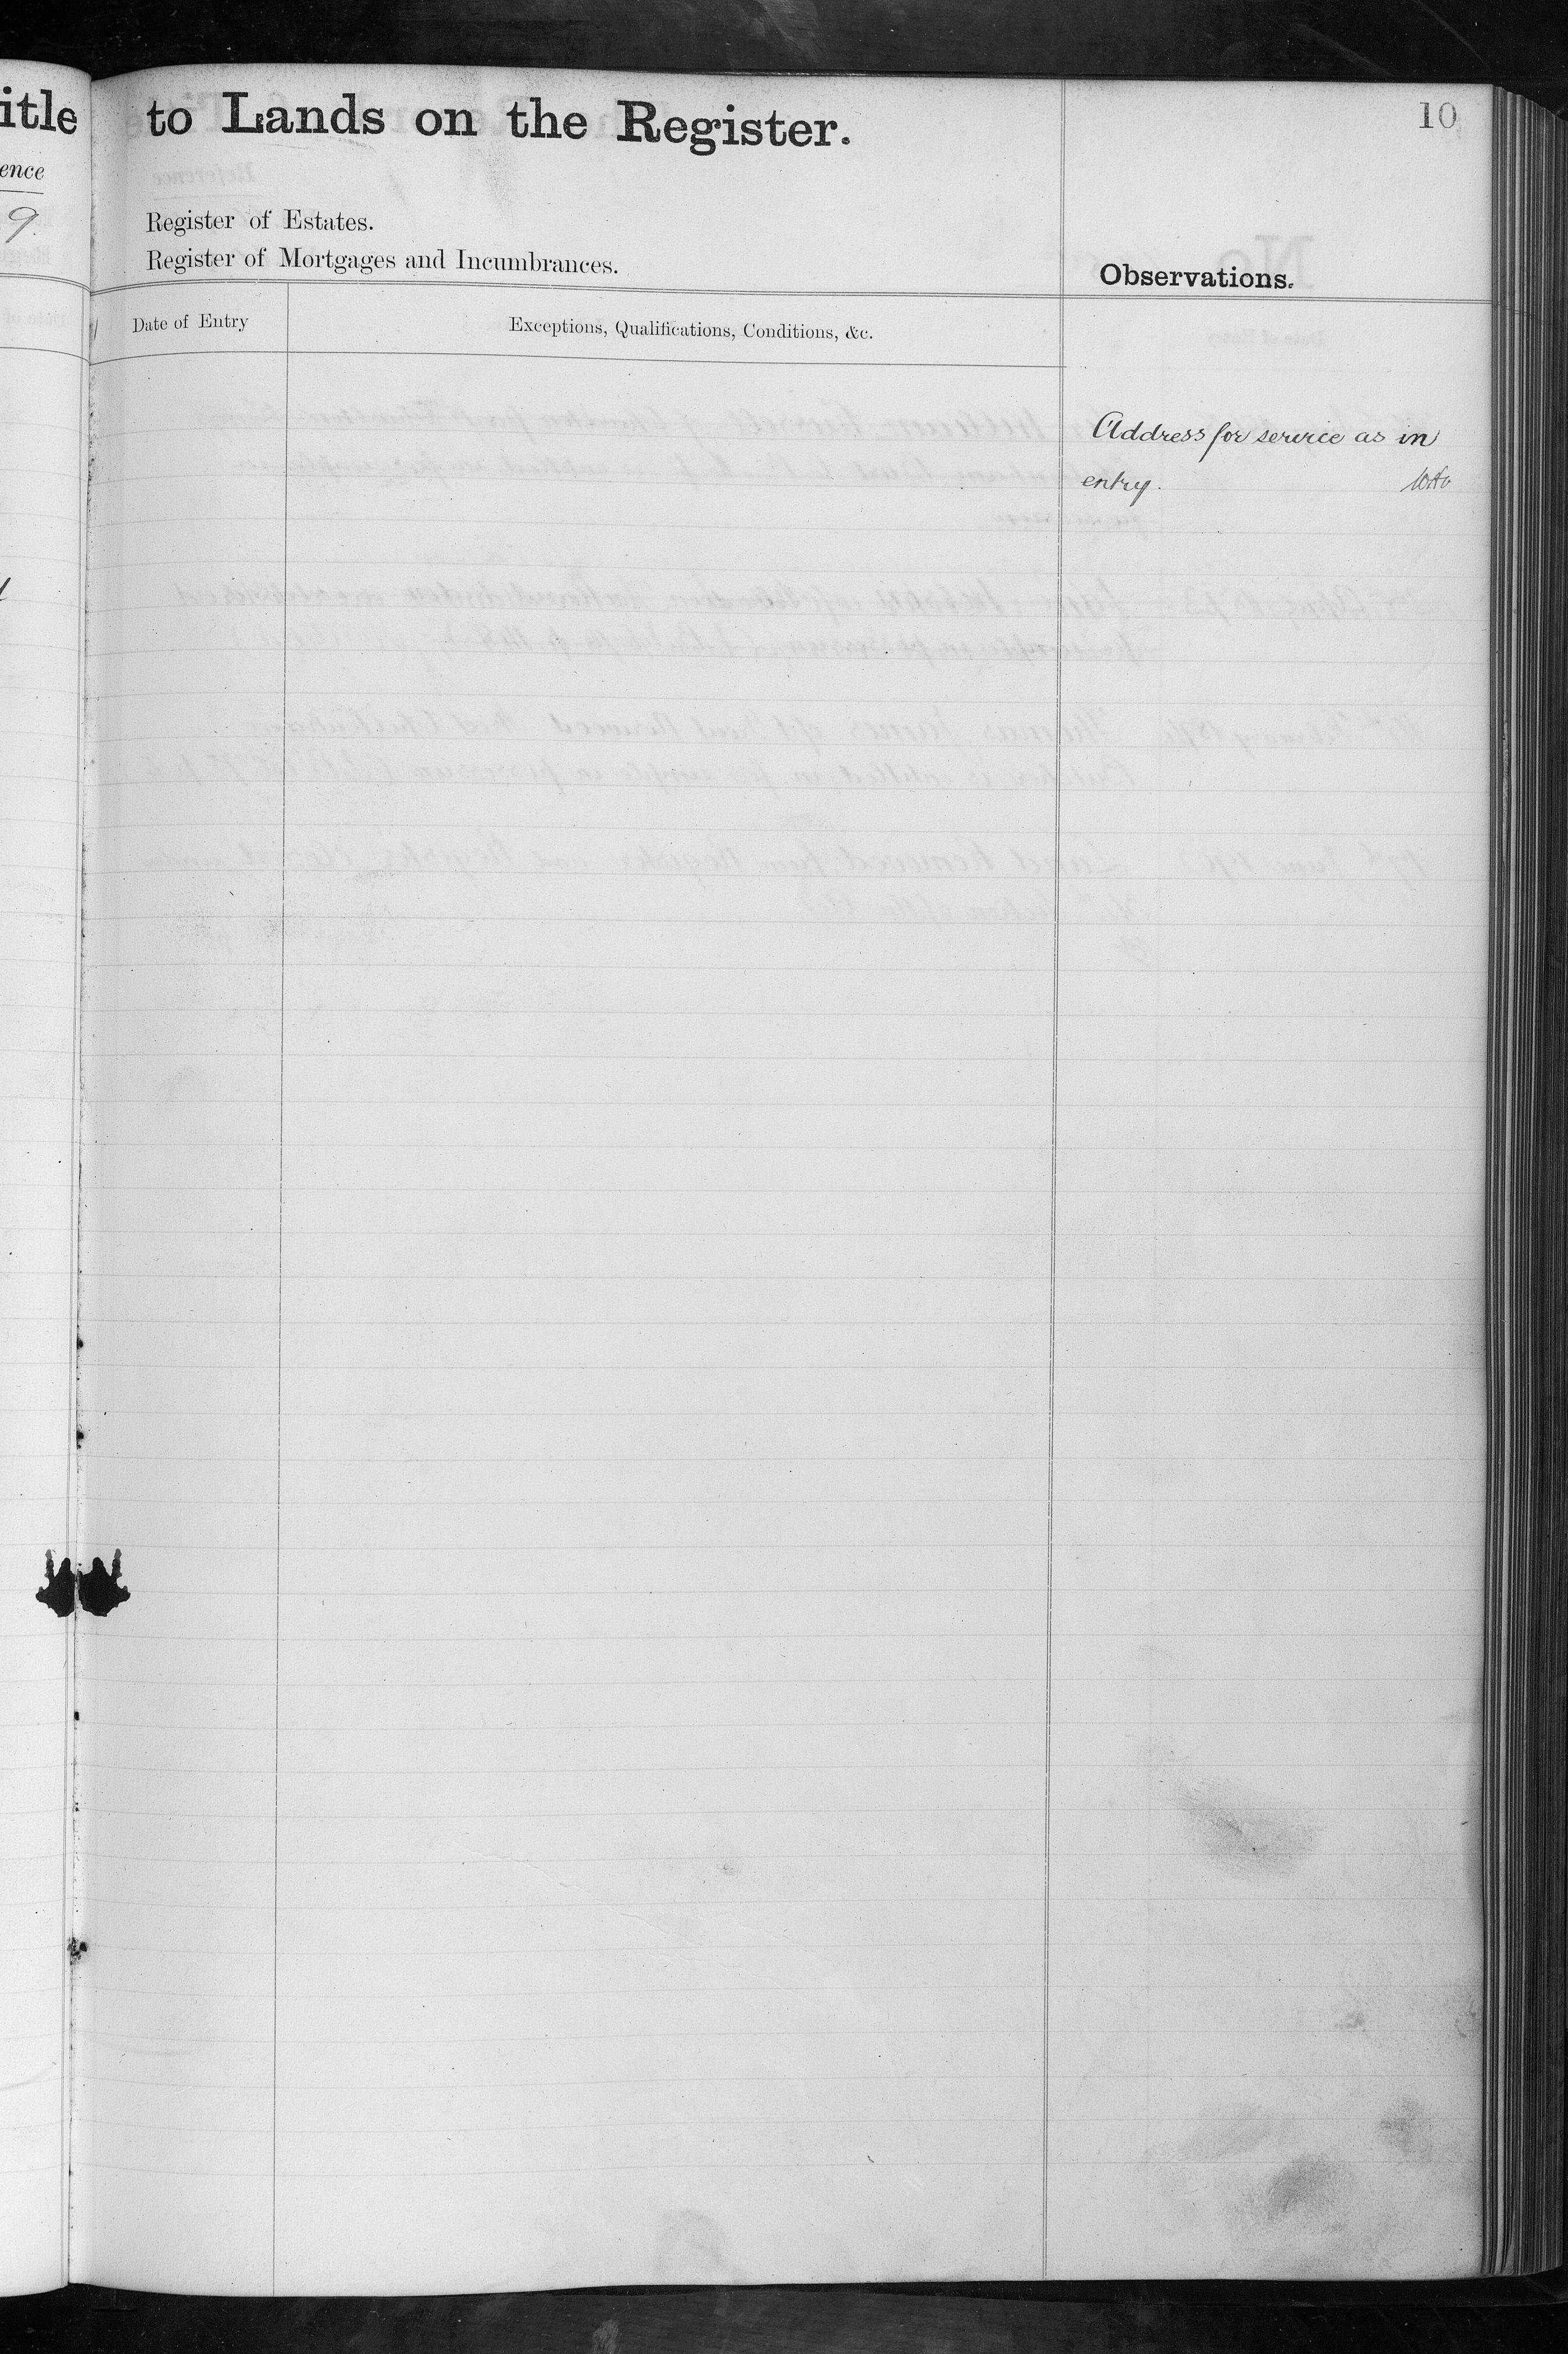 itle to Lands on the Register.
10
ence
9.
Register of Estates.
Register of Mortgages and Incumbrances.
Observations.
Date of Entry
Exceptions, Qualifications, Conditions, &c.
Address for service as in
entry.